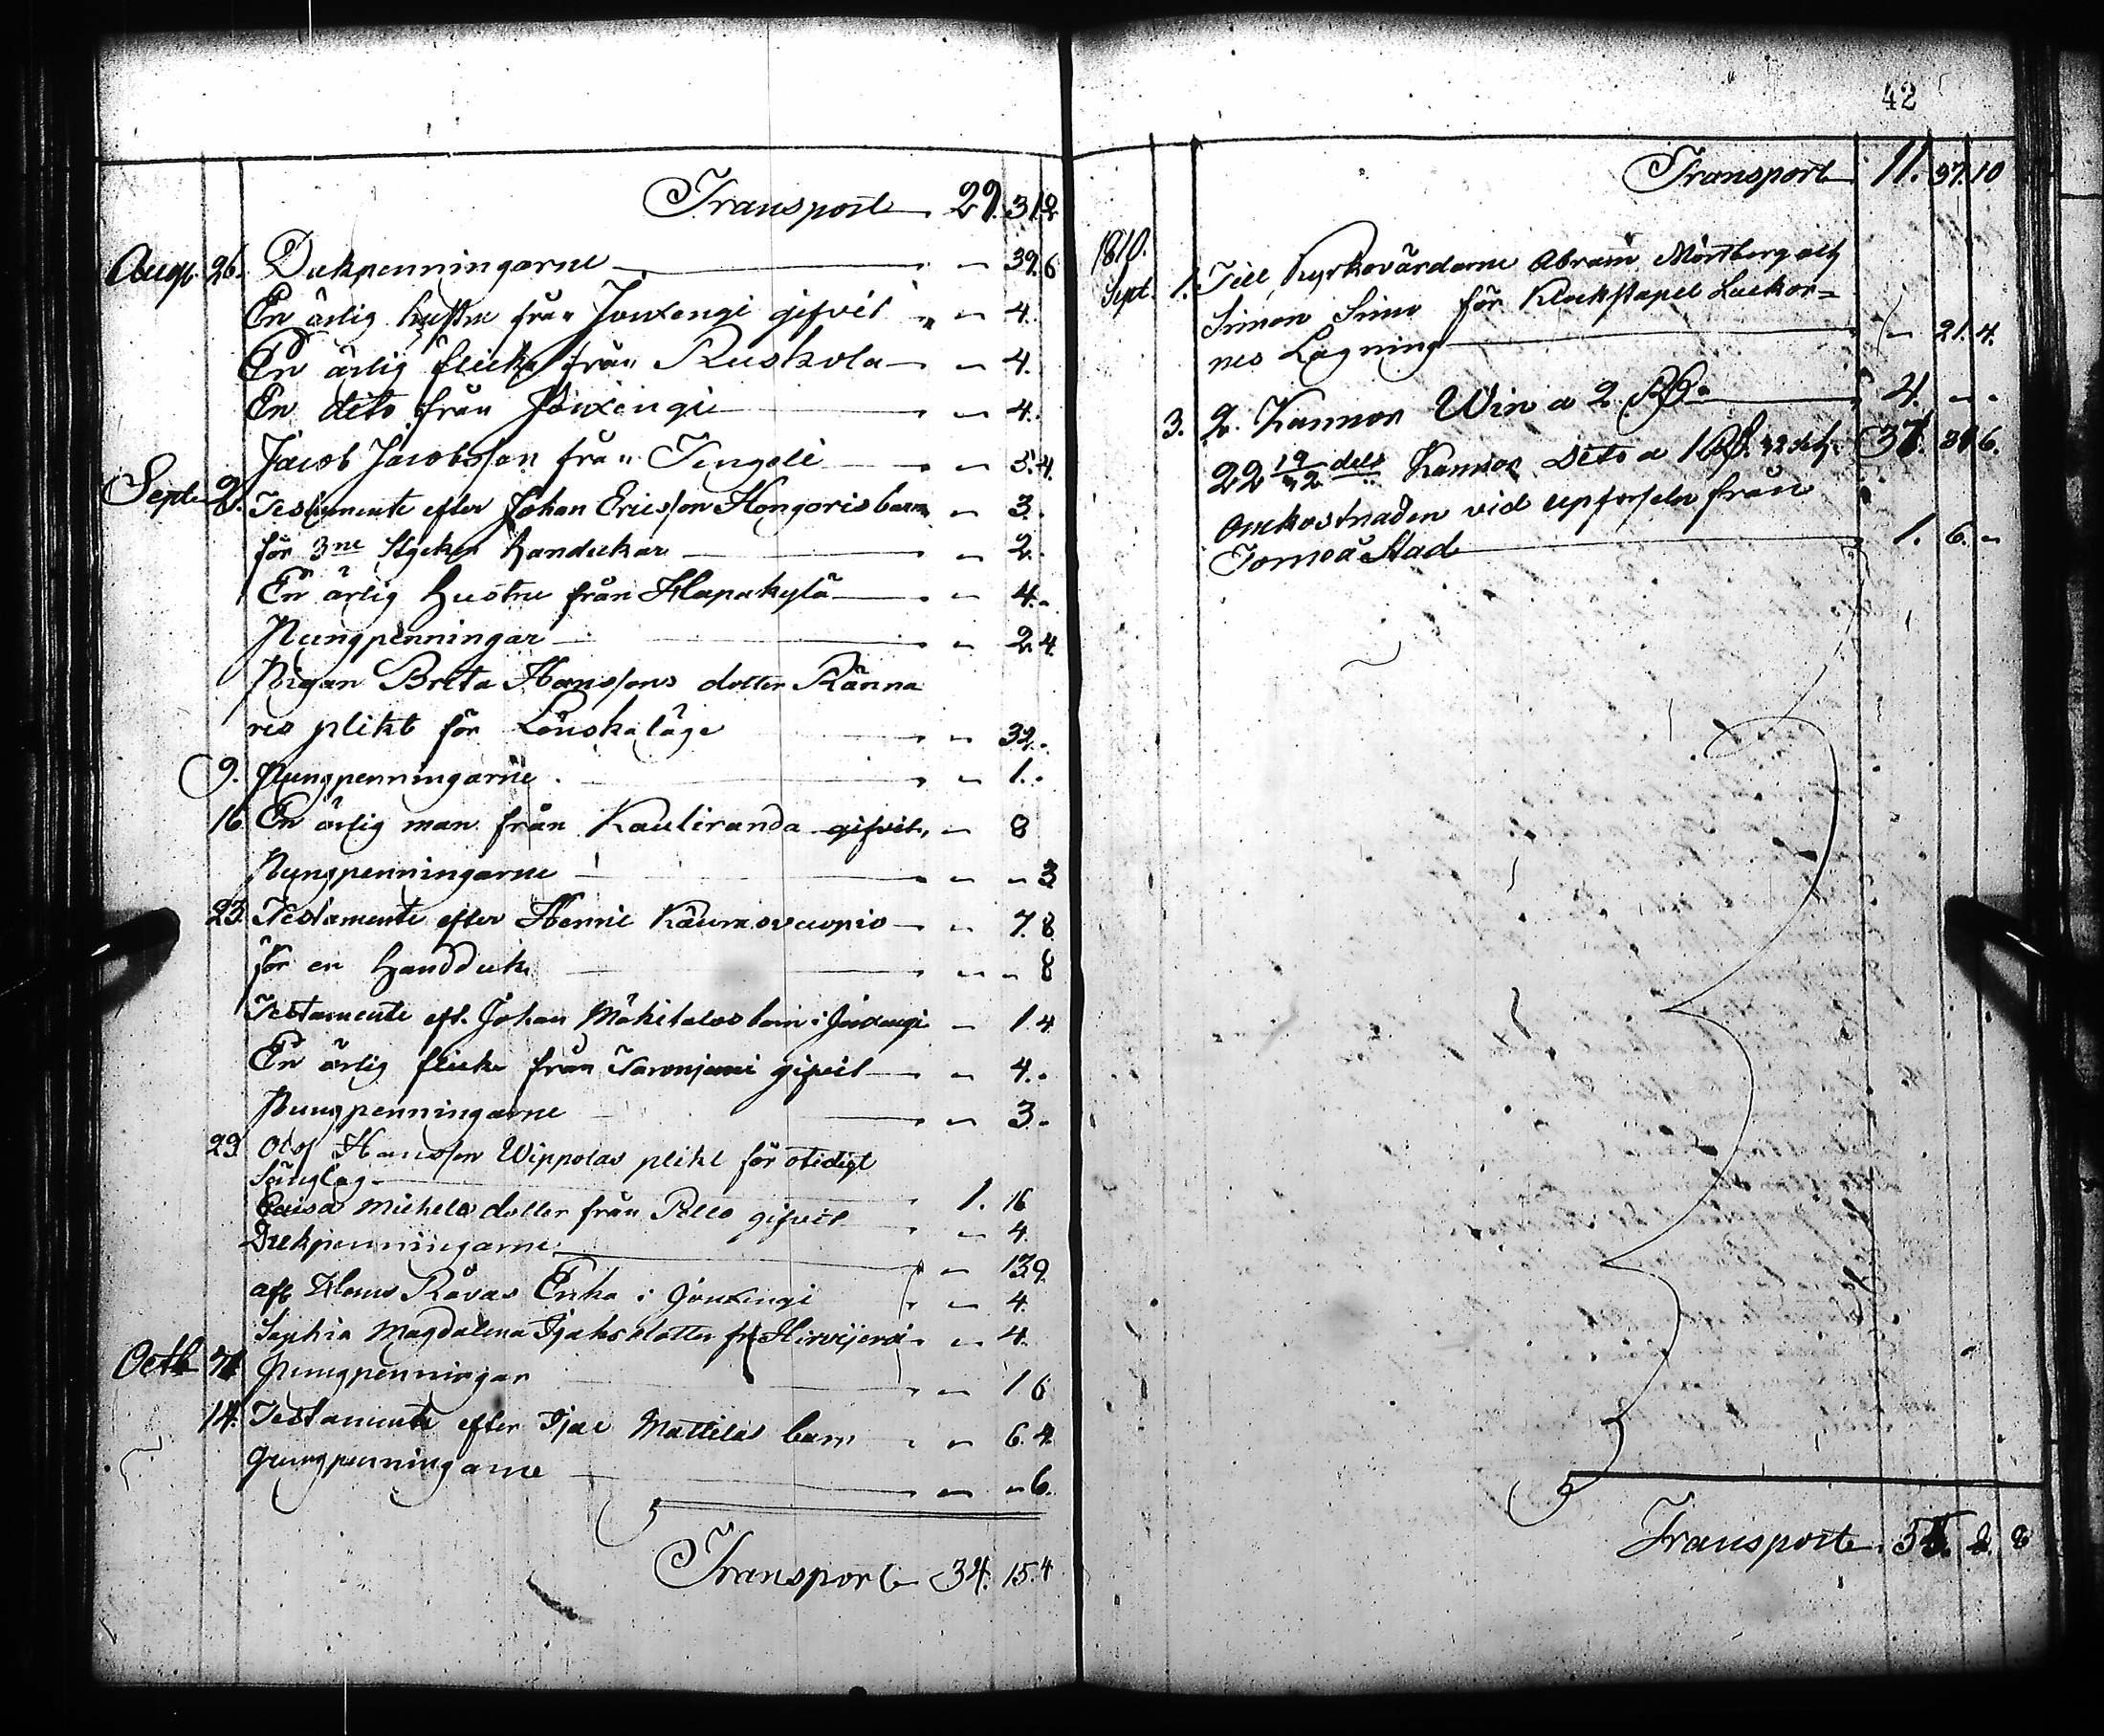 Transport 29. 31. 2
Aug. 26. Dukpenningarne — " 39. 6
En ärlig hustru från Jouxengi gifvit " — 4.
En ärlig flicka från Ruskola — " 4.
En dito från Jouxengi — " 4.
Jacob Jacobsson från Tengeli — " 5. 4.
Sept. 2. Testamente efter Johan Ericsson Hongoris barn " 3.
för 3ne Stycken handukar — " 2.
En ärlig Hustru från Haapakylä — " 4. "
Pungpenningar — " 2. 4.
Pigan Brita Hanssons dotter Ränna
ris plikt för Lönskaläge — " 32. "
9. Pungpenningarne — " 1. "
16 En ärlig man från Kauliranda gifvit, " 8
Pungpenningarne — " " 3
23. Testamente efter Henric Kaunisvuopio — " 7. 8.
för en handduk — " " 8
Testamente eft. Johan Mäkitalos barn i Jouxengi " 1 4
En ärlig flicka från Narenjemi gifvit — " 4. "
Pungpenningarne — " 3. "
29 Olof Hansson Wippolas plikt för otidigt
Sänglag — 1. 16
Caisa Michels dotter från Pello gifvit — " 4.
Dukpenningarne — " 13 9.
aft Hans Rävas Enka i Jouxengi " 4.
Sophia Magdalena Isaksdotter fr. Hirvijervi " 4.
Octb. 7. Pungpenningar — " 1 6
14. Testamente efter Isac Mattilas barn " 6. 4.
Pungpenningarne — " " 6.
Transport 34. 15. 4
42
Transport 11. 37. 10
1810.
Sept. 1. Till Kyrkovärdarne Abram Mörtberg och
Simon Simo för Klockstapel Luckor=
nes Lagning — " 21. 4.
3. 2. Kannor Win a 2 Rd. — 4. " "
22 19/32 dels Kannor Dito a 1 Rd. 32 sk. 37. 31. 6.
Omkostnaden vid upförseln från
Torneå Stad — 1. 6. "
Transport 55. 2. 8